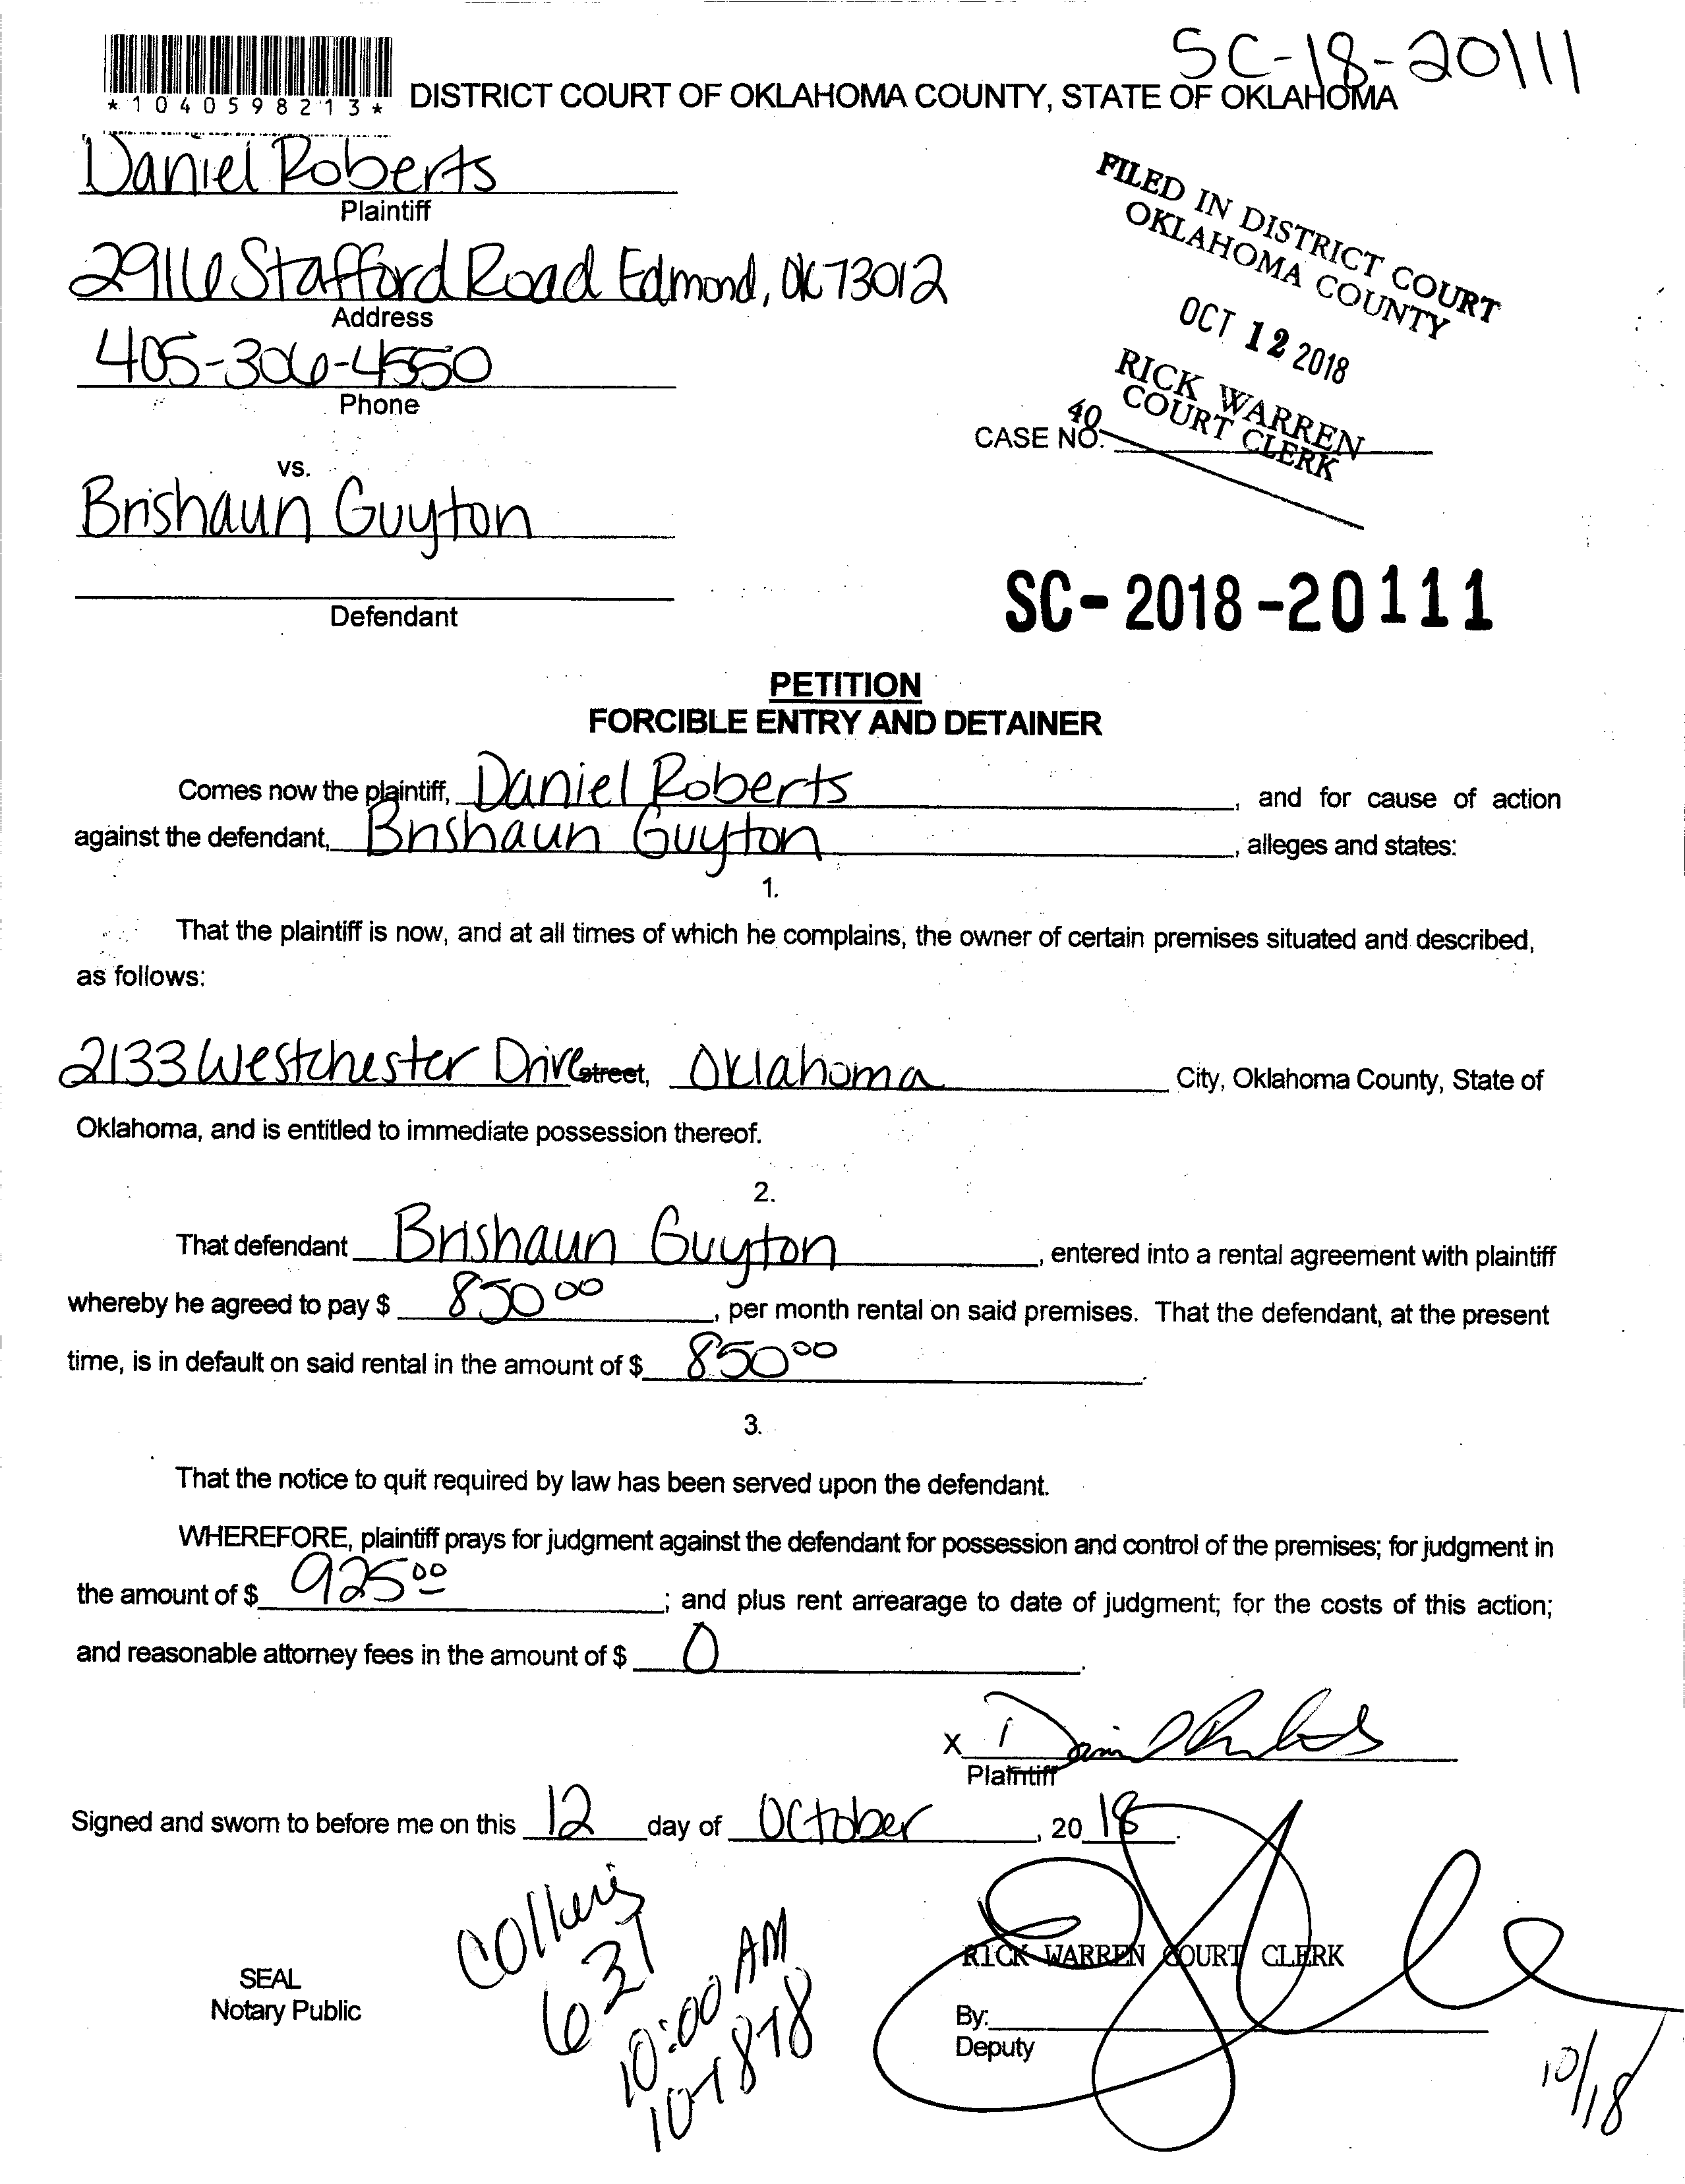 SC-18-20111
*1040598213*
DISTRICT COURT OF OKLAHOMA COUNTY, STATE OF OKLAHOMA
Daniel Roberts
Plaintiff
2916 Stafford Road Edmond, OK 73012
Address
405-306-4550
Phone
FILED IN DISTRICT COURT
OKLAHOMA COUNTY
OCT 12 2018
RICK WARREN
COURT CLERK
40
CASE NO.
vs.
Brishaun Guyton
Defendant
SC-2018-20111
PETITION
FORCIBLE ENTRY AND DETAINER
Comes now the plaintiff, Daniel Roberts, and for cause of action
against the defendant, Brishaun Guyton, alleges and states:
1.
That the plaintiff is now, and at all times of which he complains, the owner of certain premises situated and described,
as follows:
2133 Westchester Drive street, Oklahoma City, Oklahoma County, State of
Oklahoma, and is entitled to immediate possession thereof.
2.
That defendant Brishaun Guyton, entered into a rental agreement with plaintiff
whereby he agreed to pay $ 850 00, per month rental on said premises. That the defendant, at the present
time, is in default on said rental in the amount of $ 850 00.
3.
That the notice to quit required by law has been served upon the defendant.
WHEREFORE, plaintiff prays for judgment against the defendant for possession and control of the premises; for judgment in
the amount of $ 925 00; and plus rent arrearage to date of judgment; for the costs of this action;
and reasonable attorney fees in the amount of $ 0.
X Daniel Roberts
Plaintiff
Signed and sworn to before me on this 12 day of October, 20 18.
SEAL
Notary Public
631
10:00 AM
RICK WARREN COURT CLERK
By:
Deputy
10/18